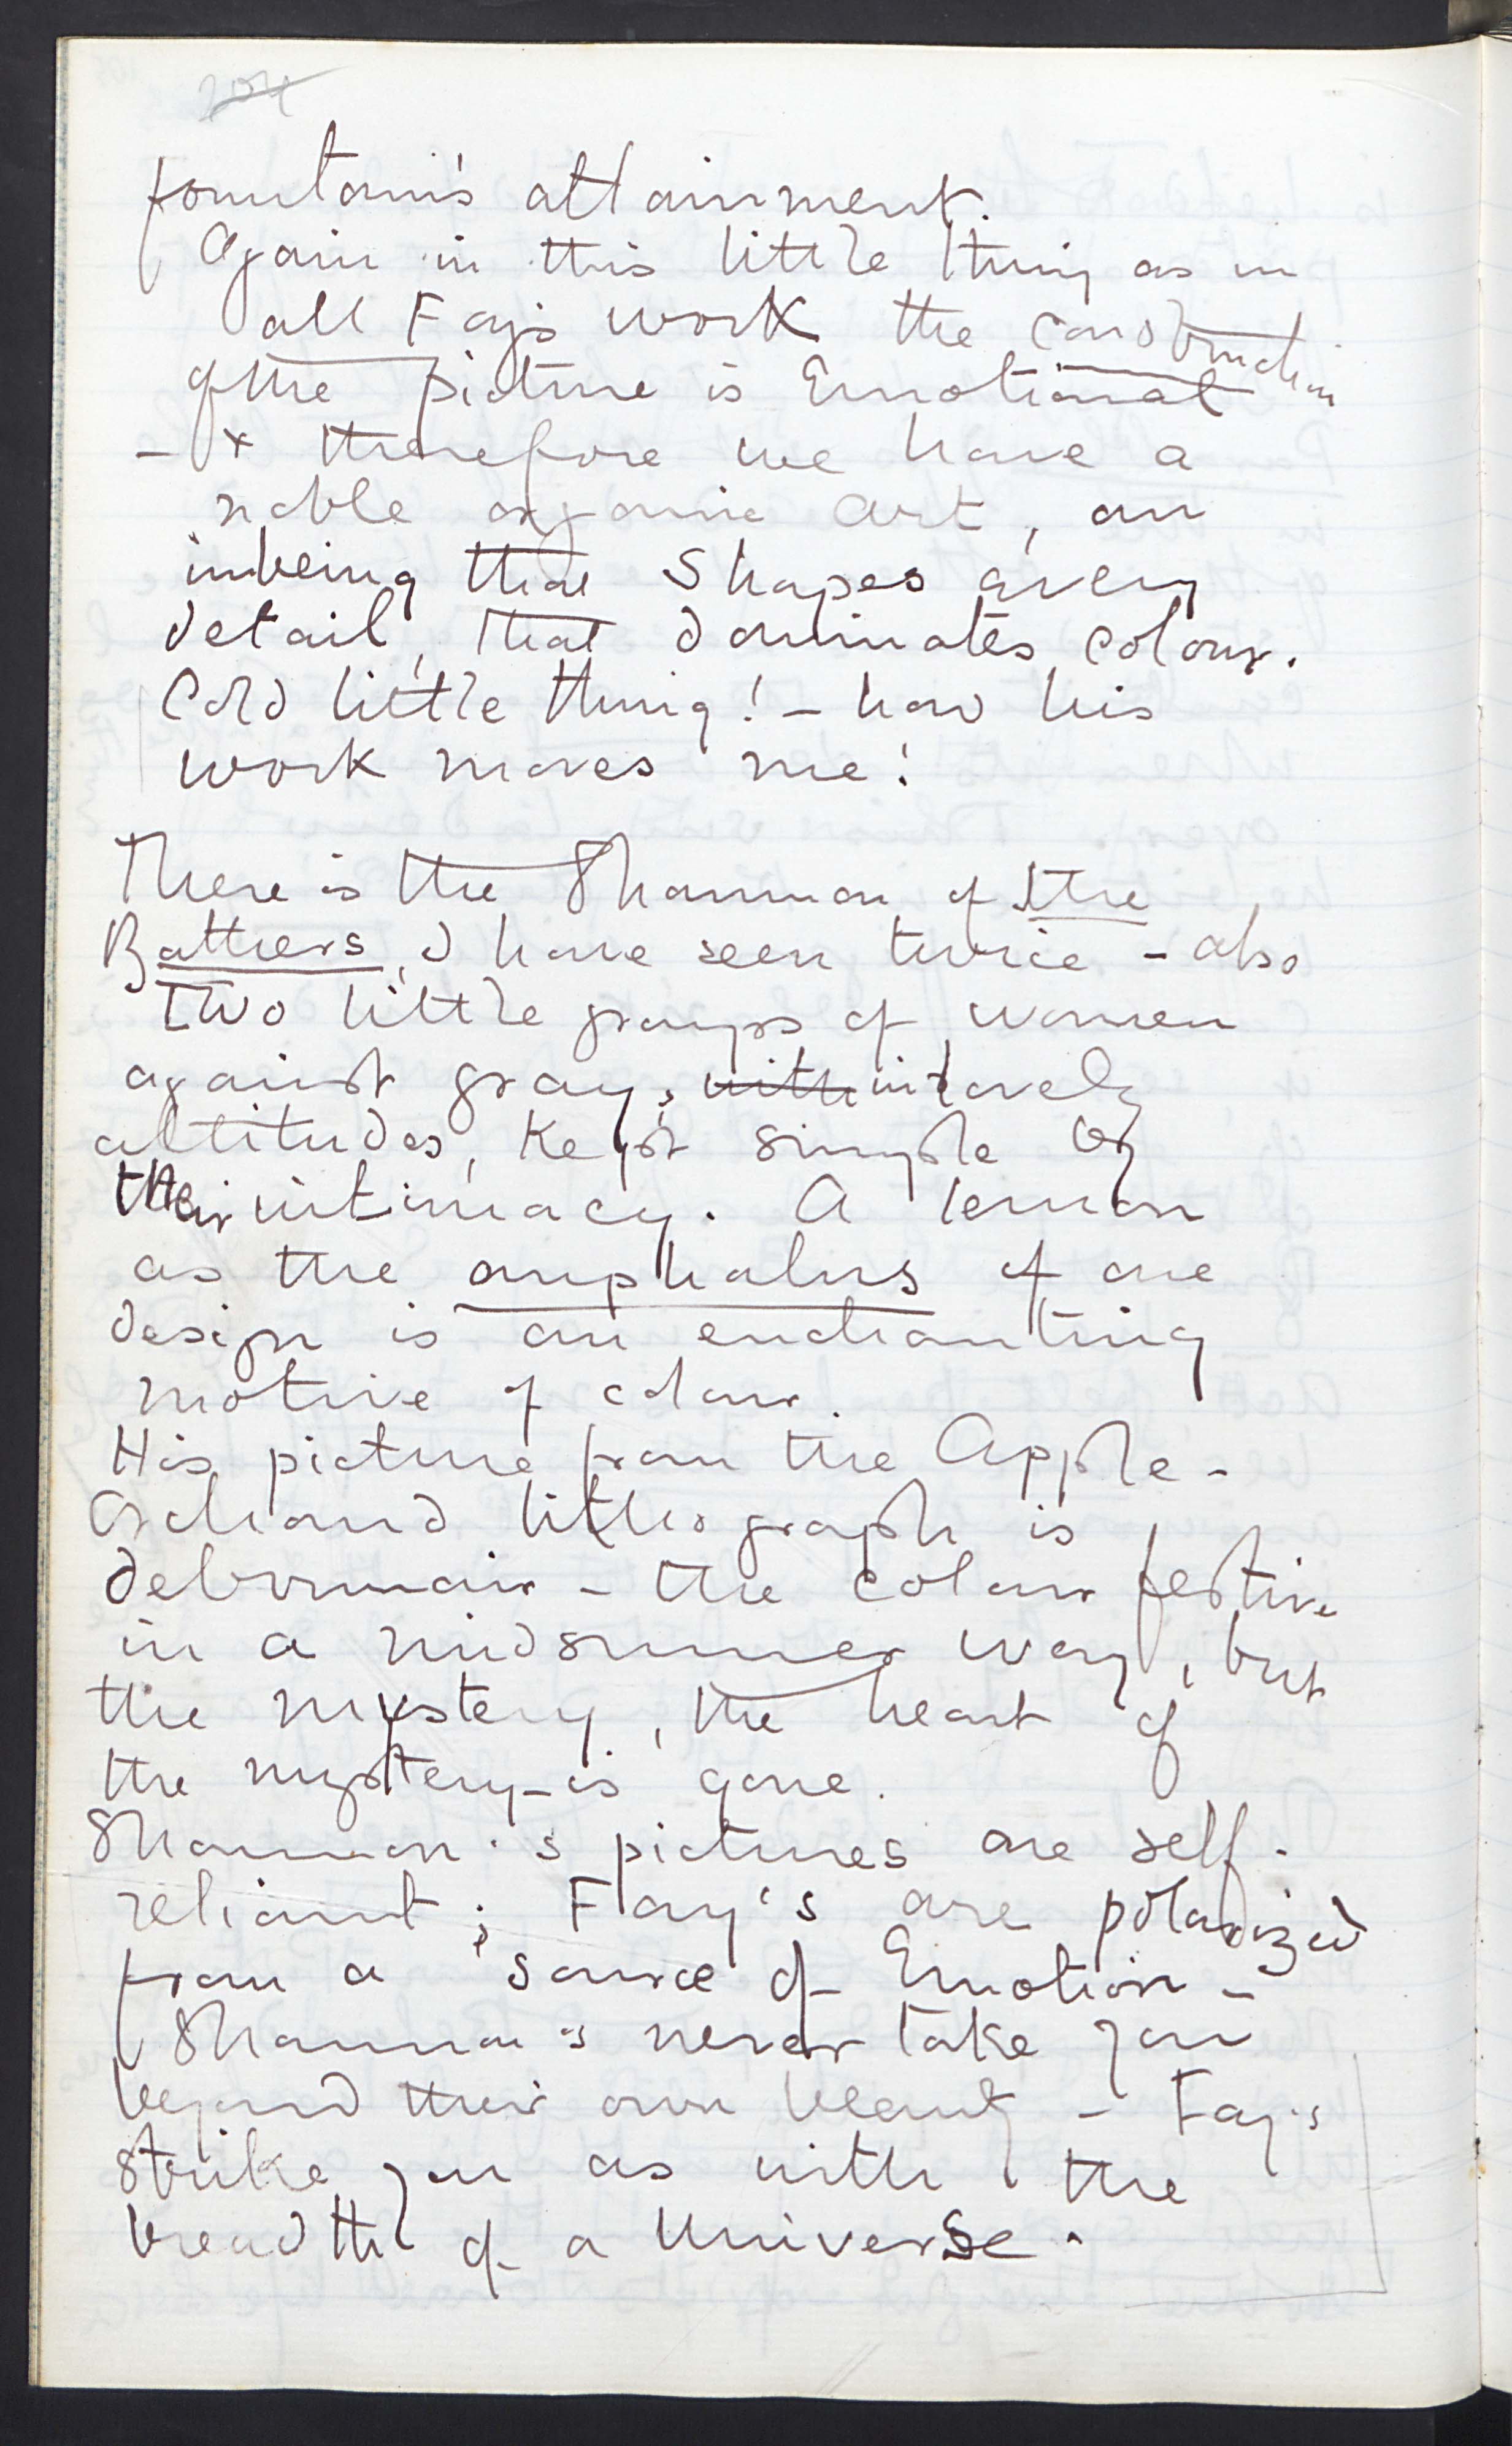 204
fountain's attainment.
Again in this little thing as in
all Fay's work the construction
of the picture is Emotional
- & therefore we have a
noble organic art, an
inbeing that shapes every
detail, that dominates colour.
Cold little thing! - how his
work moves me!
There is the Shannon of the
Bathers, I have seen twice - also
two little groups of women
against gray, with in lovely
attitudes, kept simple by
their intimacy. A lemon
as the omphalus of one
design is an enchanting
motive of colour.
His picture from the Apple-
Orchard lithograph is
debonnair - the colour festive
in a midsummer way, but
the mystery, the heart of
the mystery - is gone.
Shannon's pictures are self-
reliant; Fay's are polarized
from a source of Emotion -
Shannon's never take you
beyond their own beauty - Fay's
strike you as with the
breadth of a Universe.